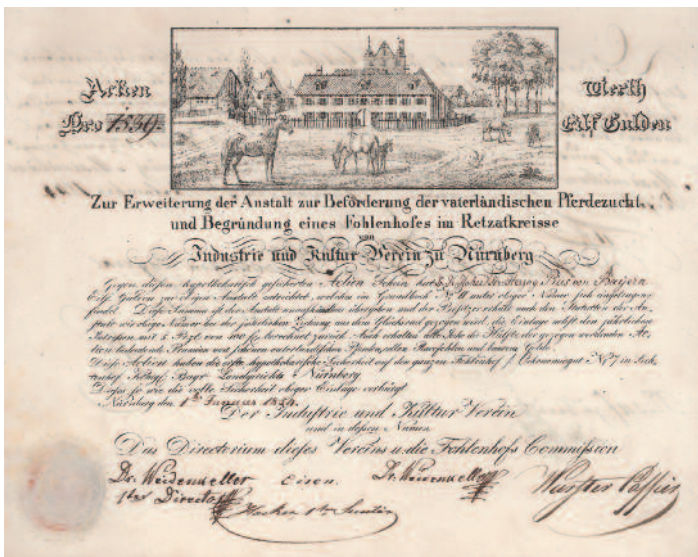 Actien
Nro 1539.
Werth
Eilf Gulden
Zur Erweiterung der Anstalt zur Beförderung der vaterländischen Pferdezucht,
und Begründung eines Fohlenhofes im Retzatkreisse
von
Industrie und Kultur Verein zu Nürnberg
Gegen diesen hypothekarisch gesicherten Actien Schein hat Herzog Pius von Bayern
Eilf Gulden zur obigen Anstalt entrichtet, welche im unter obiger Numer sich eingetragen
findet. Diese Summe ist der Anstalt übergeben und der Besitzer erhält nach den Statuten der An-
stalt wie obige Numer bei der jährlichen Ziehung aus dem Glücksrad gezogen wird, die Einlage nebst den jährlichen
Interessen mit 5 Przt. von 100 fl. berechnet zurück. Auch erhalten alle Jahr die Hälfte der gezogen werdenden Ac-
tien bedeutende Praemien von schönen vaterländischen Pferden, und baarem Gelde.
Diese Actien haben die erste hypothekarische Sicherheit auf den ganzen Fohlenhof
Landgerichts Nürnberg
Dieses so wie die volle Sicherheit obiger Einlage verbürgt
Nürnberg den 1ten Januar 1834.
Der Industrie und Kultur Verein
und in dessen Namen
Das Directorium dieses Vereins u. die Fohlenhofs Commission
Dr. Weidenkeller Eisen. Dr. Weidenkeller Wurster
1ter Director